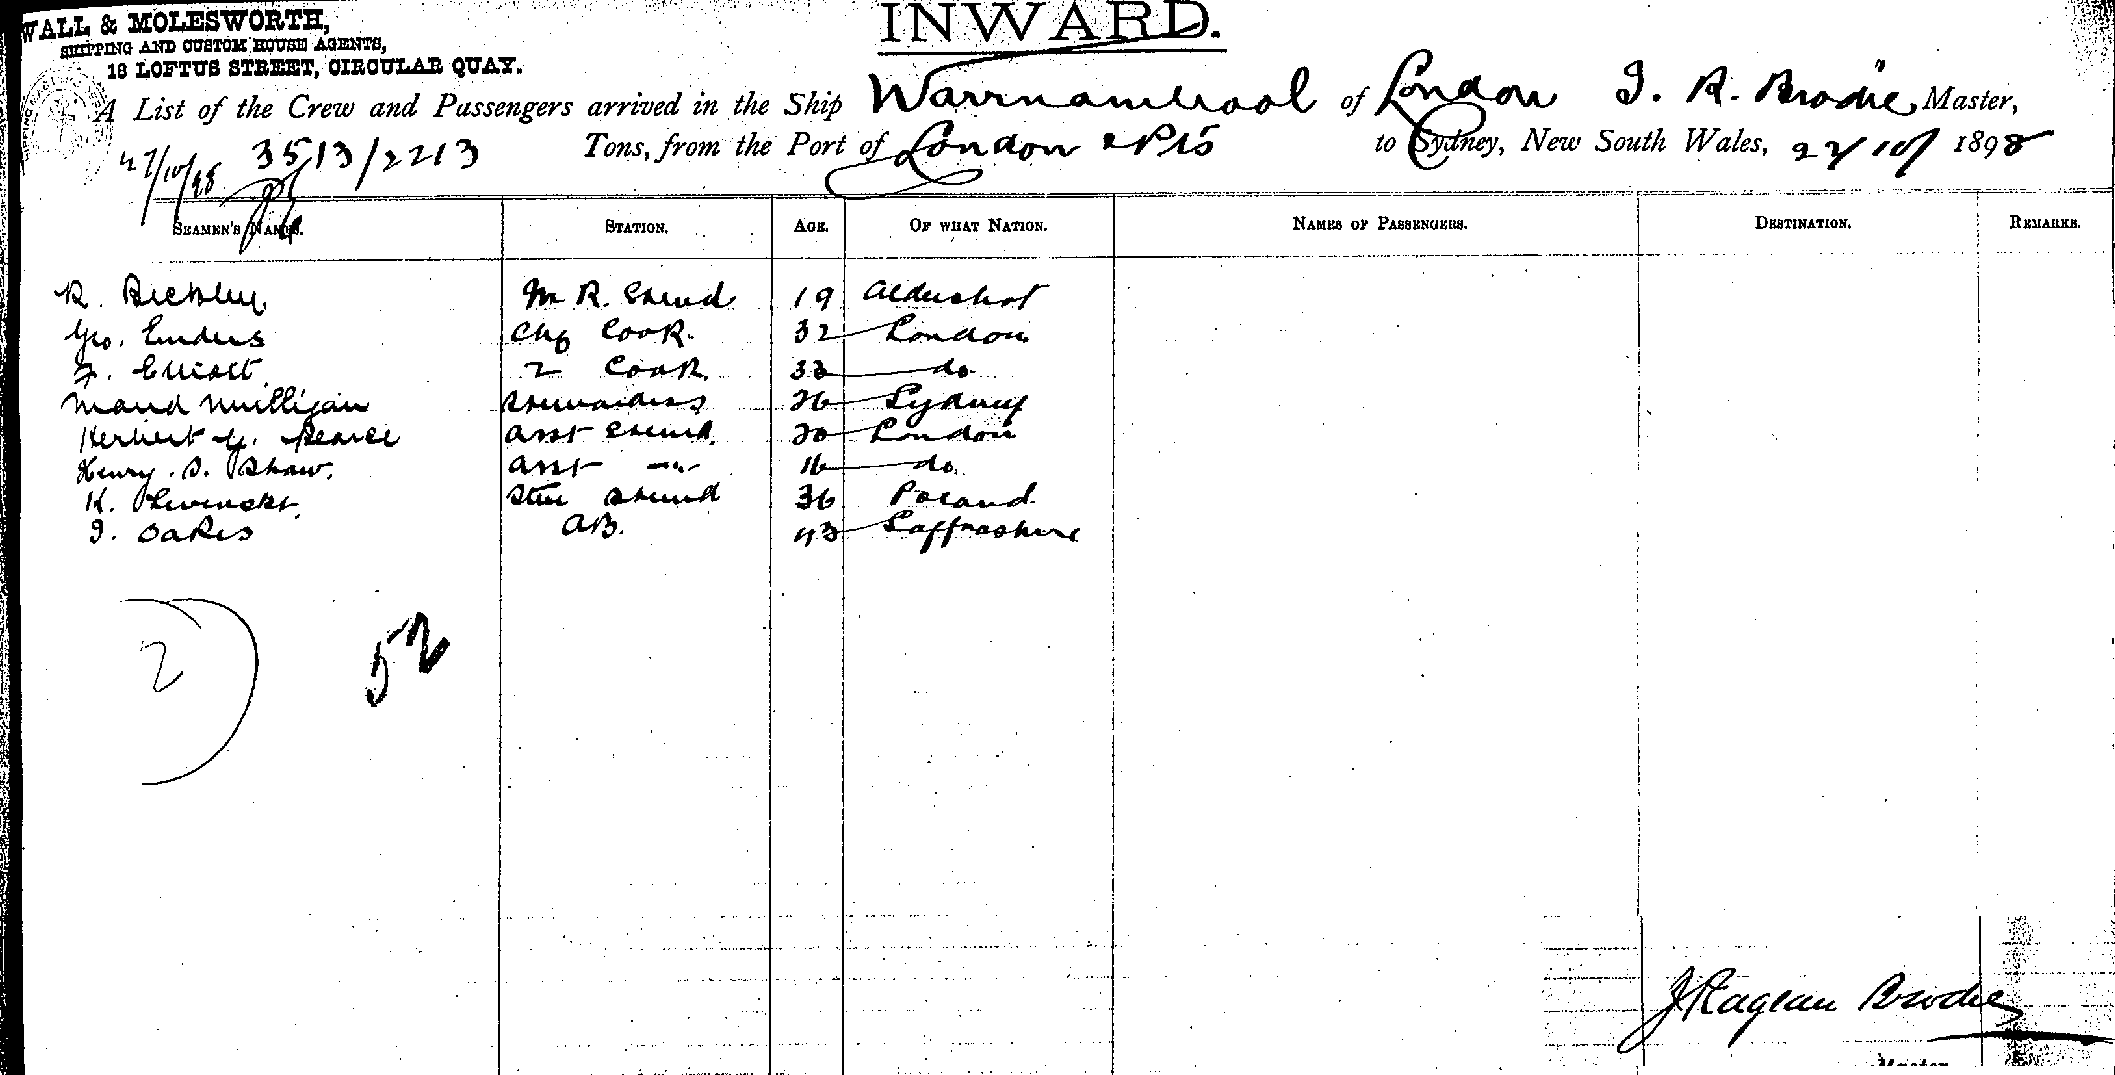 WALL & MOLESWORTH,
SHIPPING AND CUSTOM HOUSE AGENTS,
18 LOFTUS STREET, CIRCULAR QUAY.
INWARD.
A List of the Crew and Passengers arrived in the Ship Warrnambool of London J. R. Brodie Master,
27/10/98 3513/2213 Tons, from the Port of London & Pts to Sydney, New South Wales, 27/10/ 1898
SEAMEN'S NAMES. STATION. AGE. OF WHAT NATION. NAMES OF PASSENGERS. DESTINATION. REMARKS.
R. M R. Stewd 19 Aldershot
Geo. Enders Chf Cook. 32 London
F. Elliott. 2 Cook. 33 do
Maud Mulligan Stewardess 26 Sydney
Herbert G. Pearce Asst Stewd. 20 London
Henry. S. Shaw. Asst -"- 16 do
K. Levinski. Stew 36 Poland
J. Oakes AB. 43
2
52
Brodie
Master